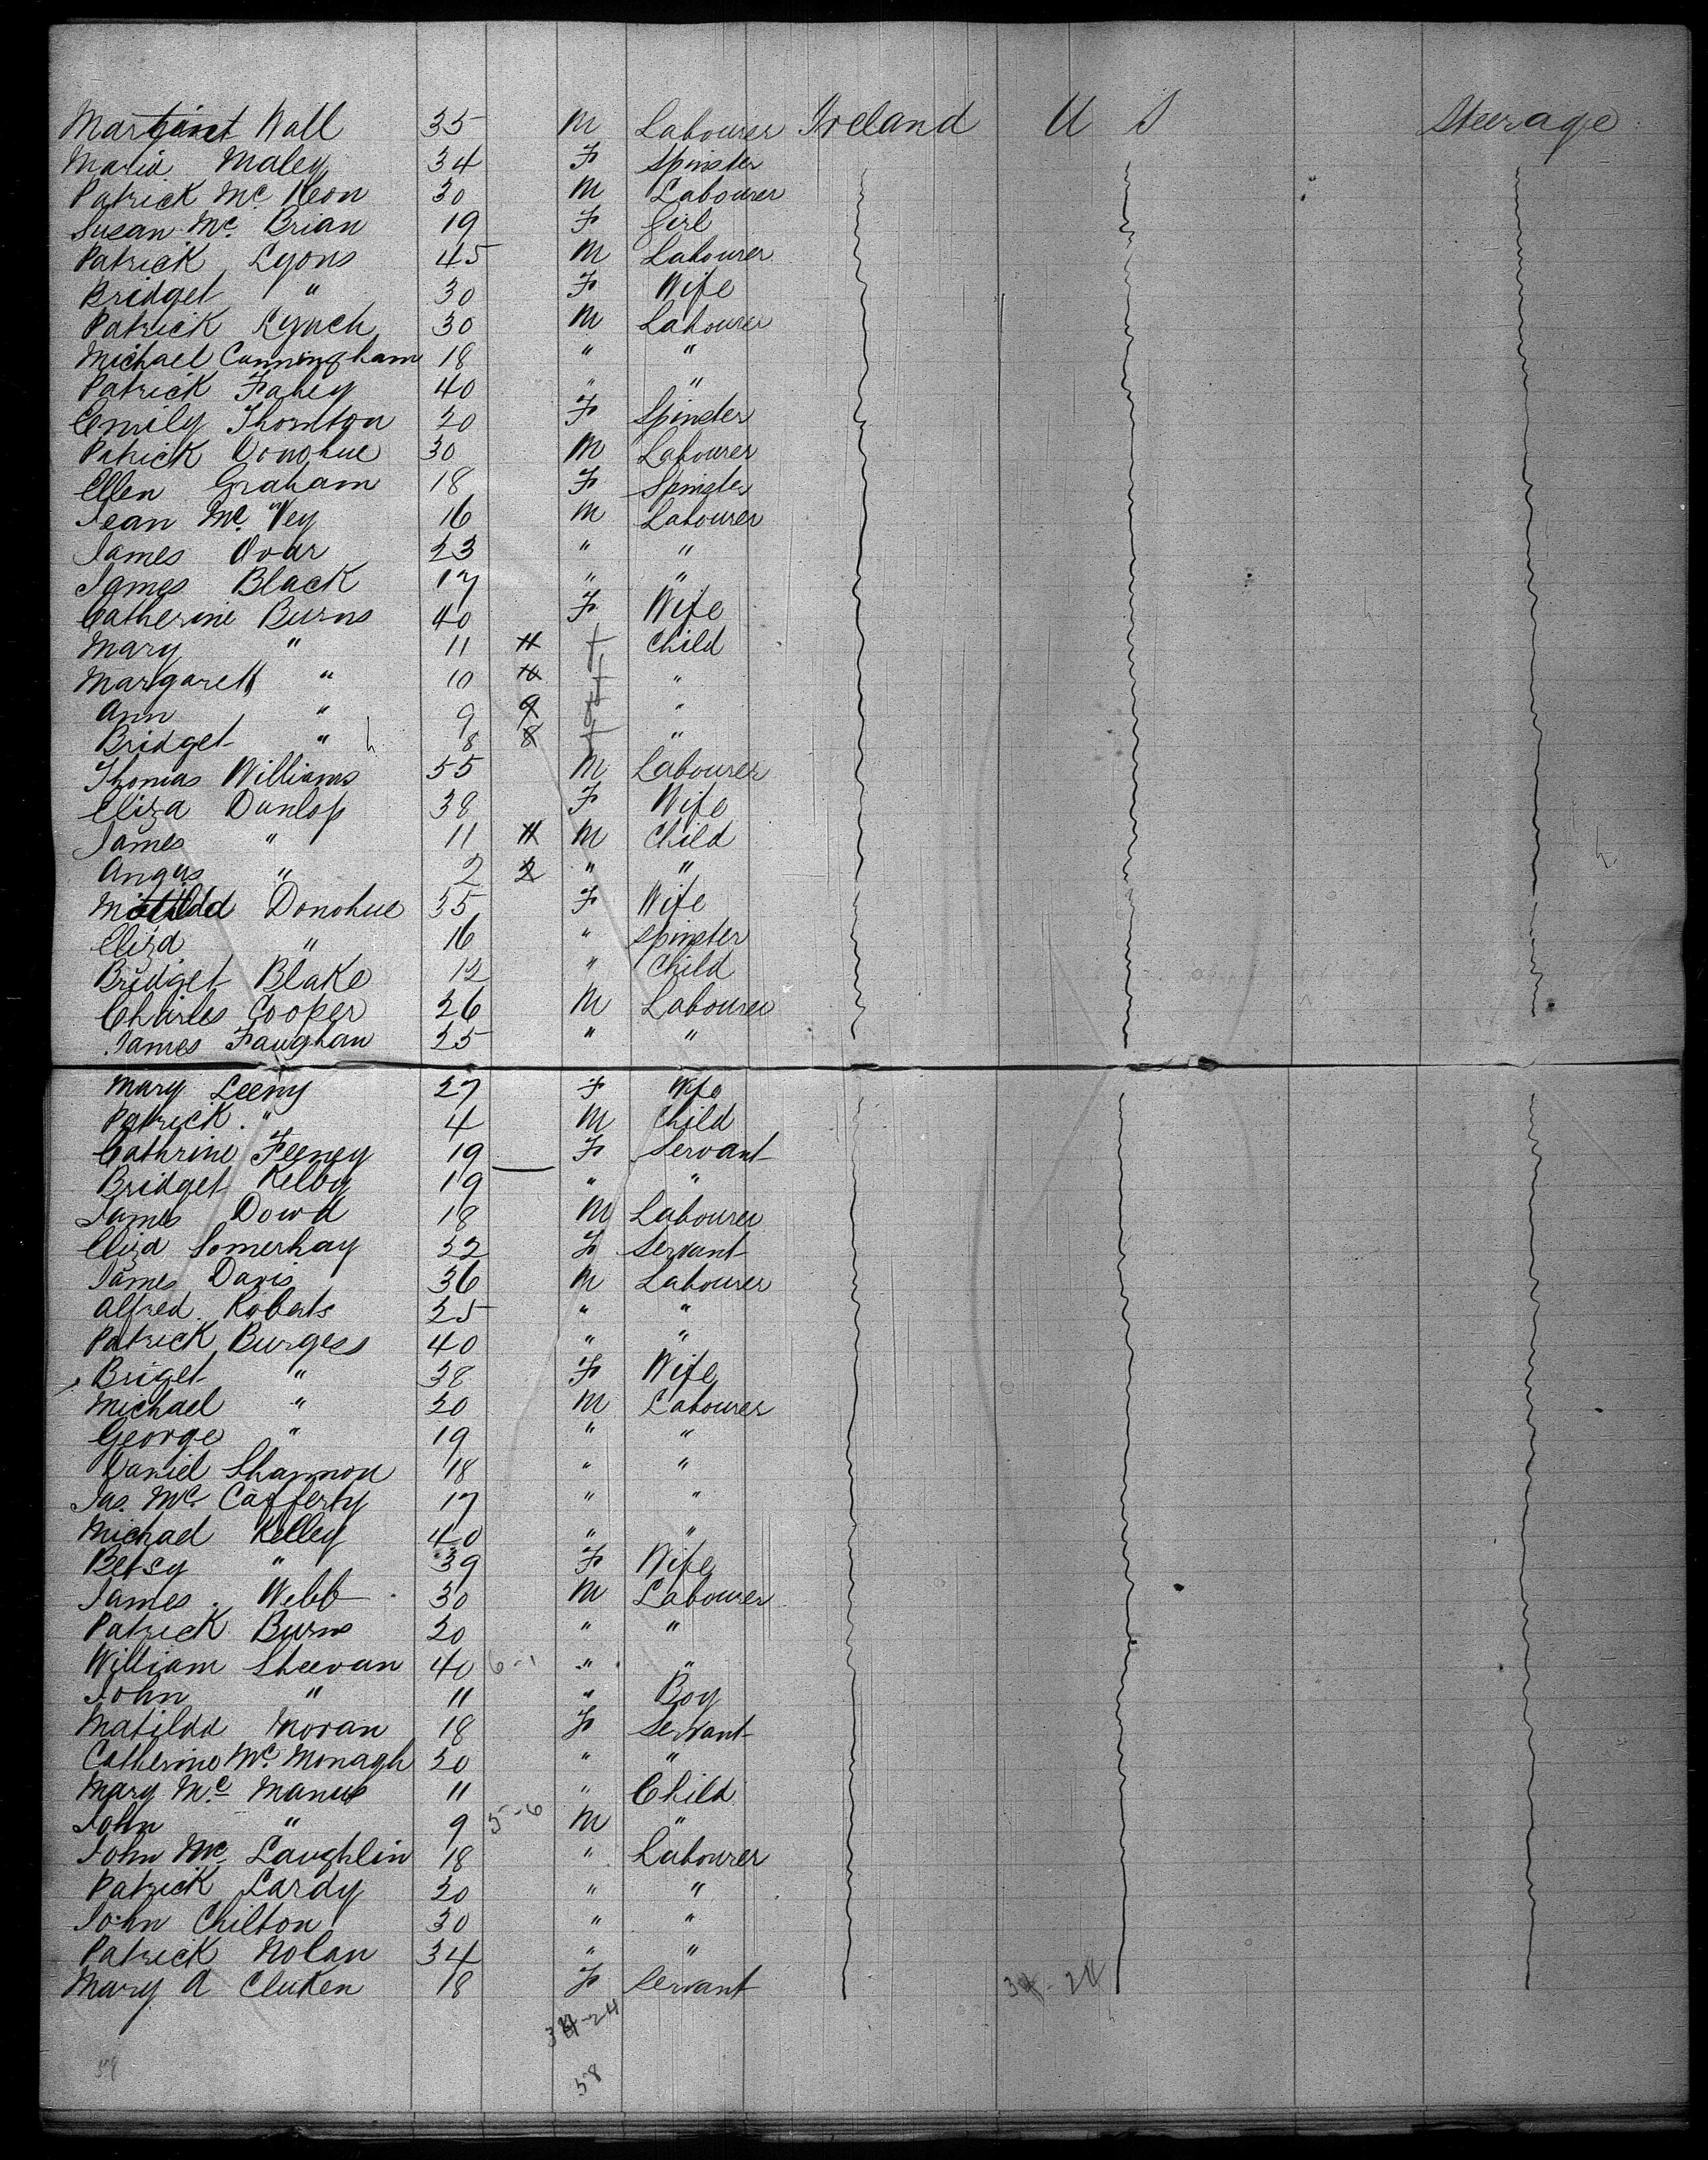 Martint Wall 35 M Labourer Ireland U S Steerage
Maria Maley 34 F Spinster
Patrick Mc Keon 30 M Labourer
Susan Mc Brian 19 F Girl
Patrick Lyons 45 M Labourer
Bridget " 30 F Wife
Patrick Lynch 30 M Labourer
Michael Cunningham 18 " "
Patrick Fahey 40 " "
Emily Thornton 20 F Spinster
Patrick Donohue 30 M Labourer
Ellen Graham 18 F Spinster
Jean Mc Vey 16 M Labourer
James Doar 23 " "
James Black 17 " "
Catherine Burns 40 F Wife
Mary " 11 11 f Child
Margarett " 10 10 f "
Ann " 9 9 f "
Bridget " h 8 8 f "
Thomas Williams 55 M Labourer
Eliza Dunlop 38 F Wife
James " 11 11 M Child
Angus " 2 2 " "
Matilda Donohue 35 F Wife
Eliza " 16 " Spinster
Bridget Blake 12 " Child
Charles Cooper 26 M Labourer
James Faughan 25 " "
Mary Leeny 27 F Wife
Patrick " 4 M Child
Cathrine Feeney 19 F Servant
Bridget Kelby 19 " "
James Dowd 18 M Labourer
Eliza Somerhay 22 F Servant
James Davis 36 M Labourer
Alfred Roberts 25 " "
Patrick Burgess 40 " "
Briget " 38 F Wife
Michael " 20 M Labourer
George " 19 " "
Daniel Shannon 18 " "
Jas. Mc Cafferty 17 " "
Michael Kelley 40 " "
Betsy " 39 F Wife
James Webb 30 M Labourer
Patrick Burns 20 " "
William Sheevan 40 6-1 " "
John " 11 " Boy
Matilda Moran 18 F Servant
Catherine Mc Monagh 20 " "
Mary Mc Manus 11 " Child
John " 9 5-6 M "
John Mc Laughlin 18 " Labourer
Patrick Lardy 20 " "
John Chilton 30 " "
Patrick Nolan 34 " "
Mary A Cluken 18 F Servant 34-24
34-24
58 58